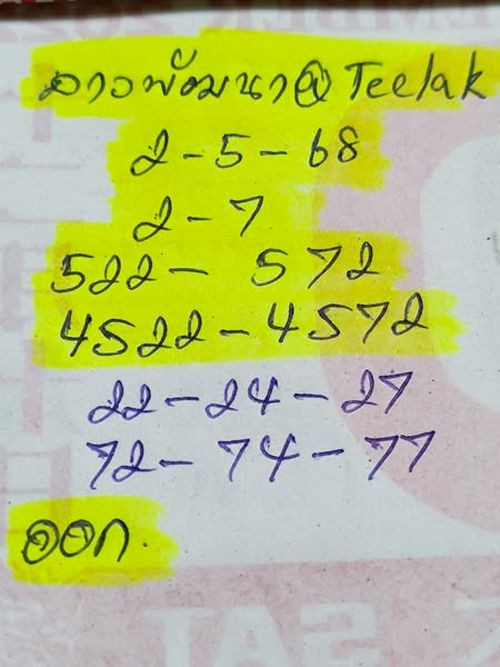 ลาวพัฒนา@Teelak
2-5-68
2-7
522- 572
4522-4572
22-24-27
72-74-77
ออก.